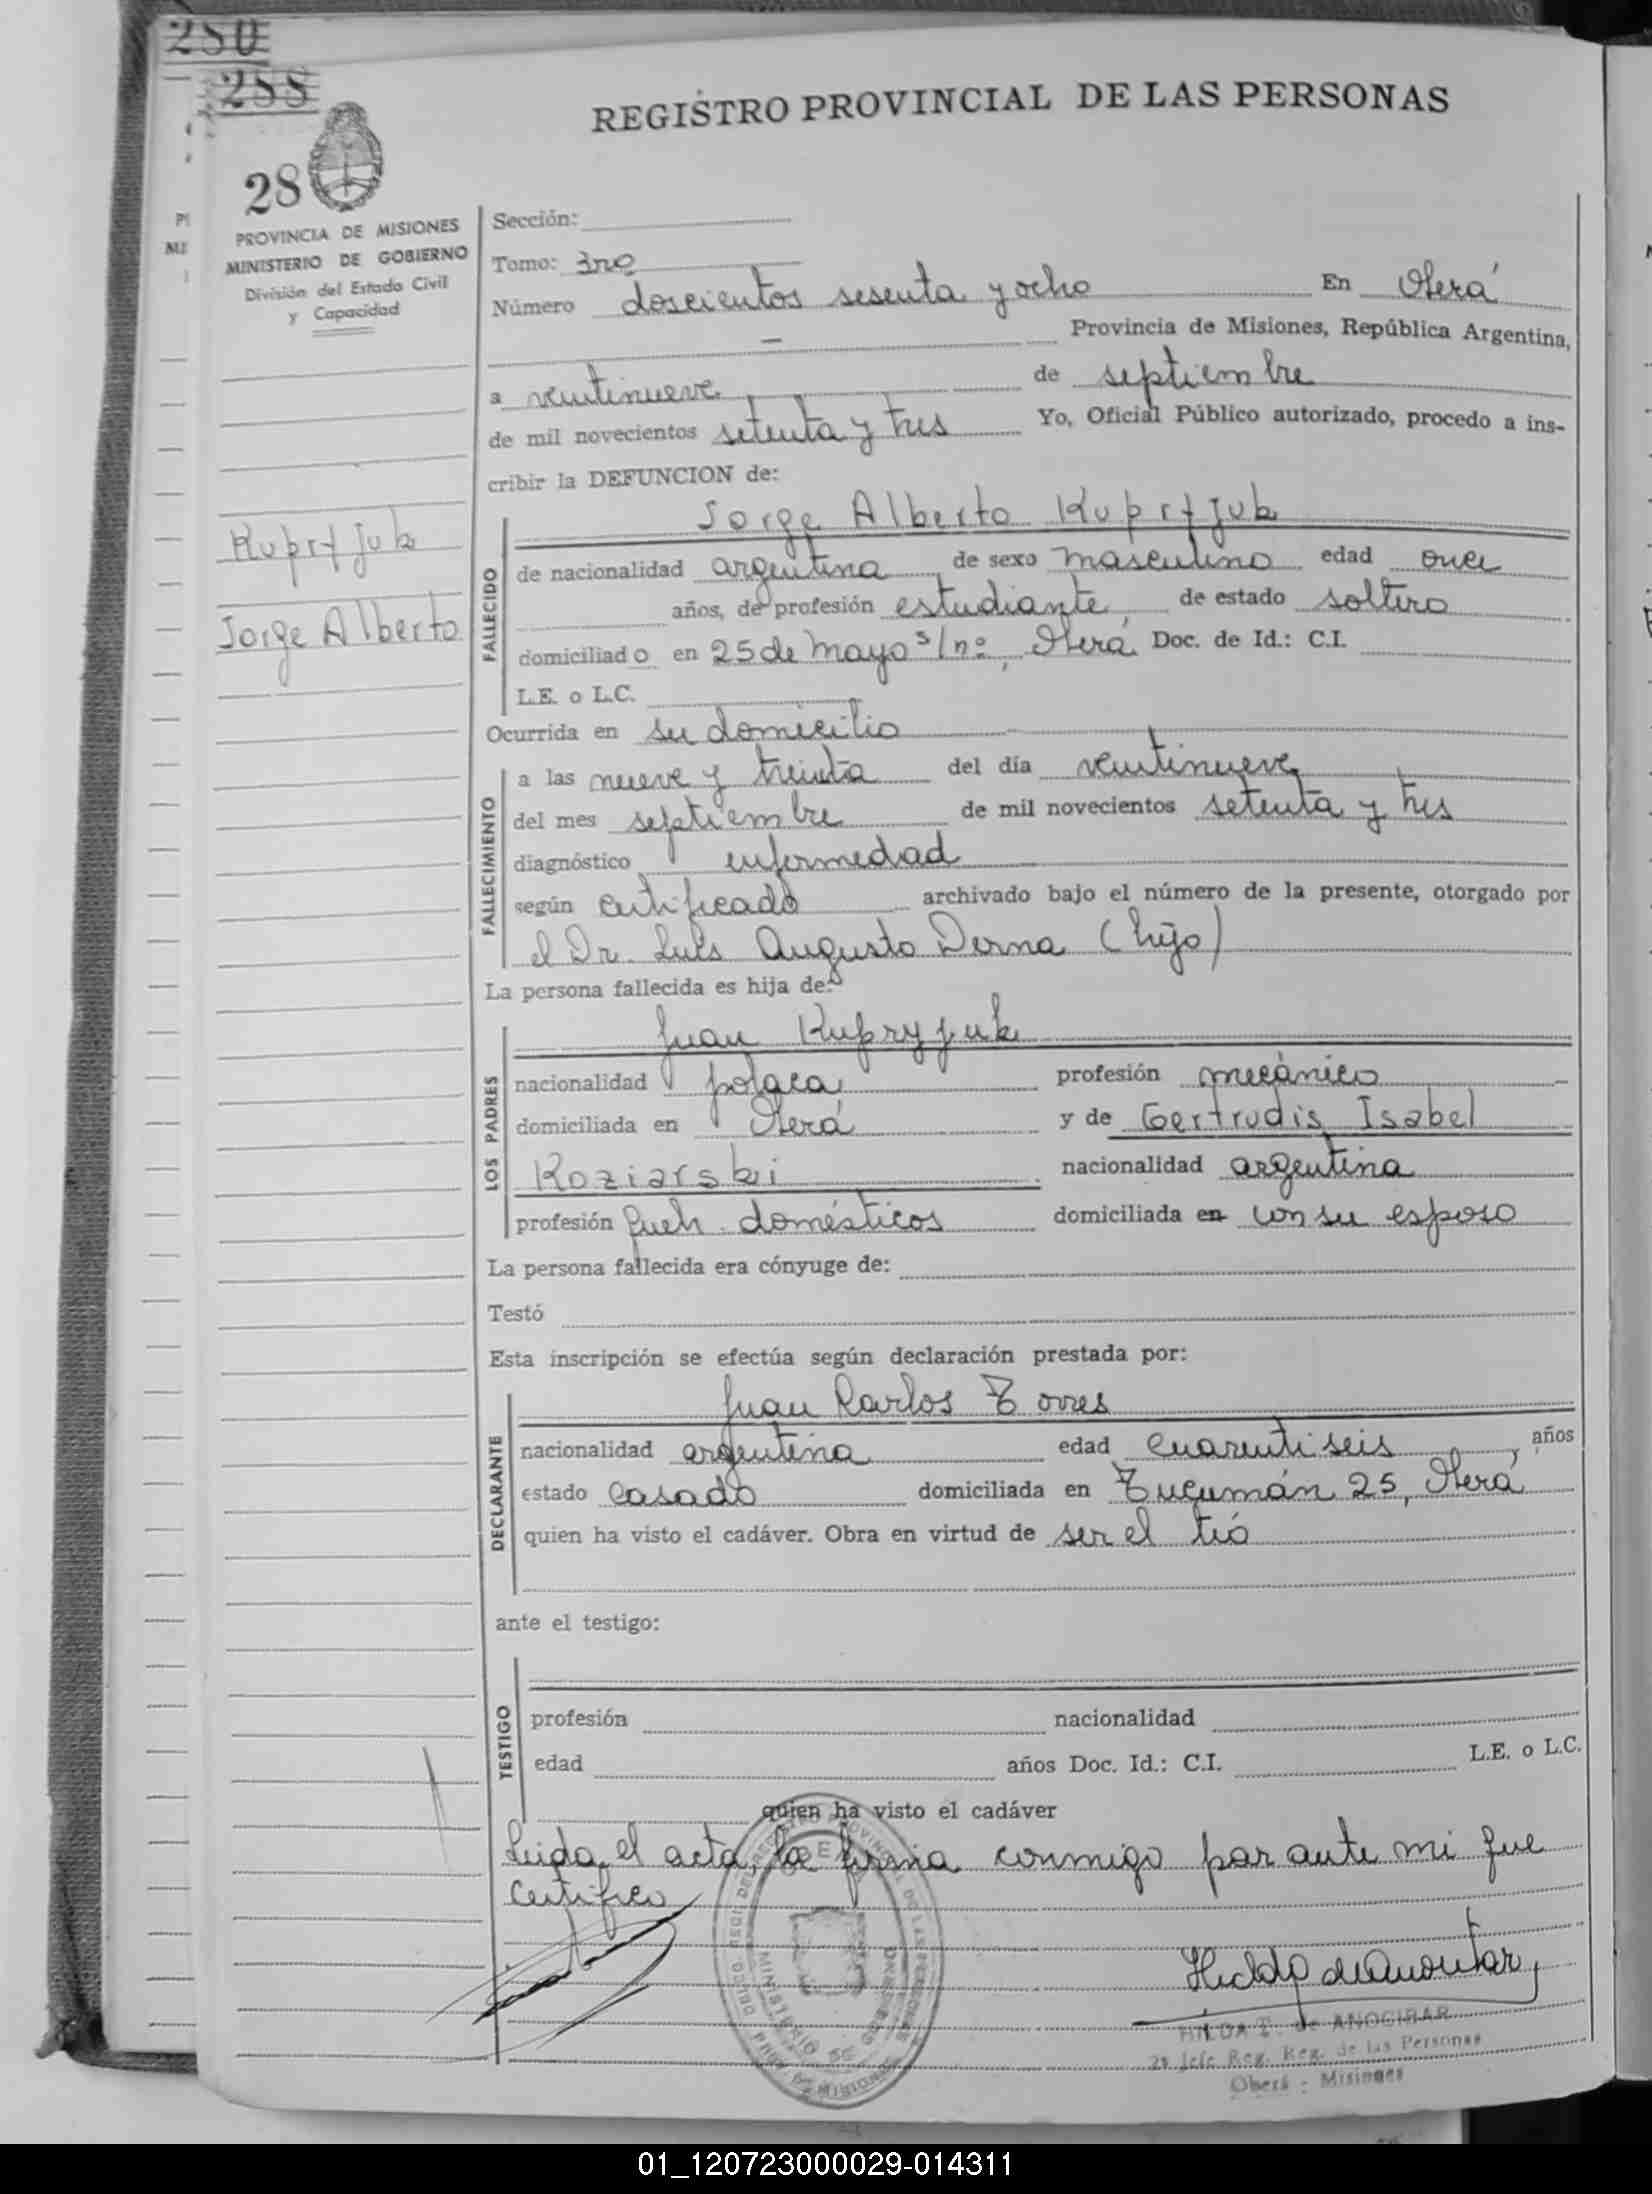 280
288
28
REGISTRO PROVINCIAL DE LAS PERSONAS
PROVINCIA DE MISIONES
MINISTERIO DE GOBIERNO
División del Estado Civil
y Capacidad
Kupryjuk
Jorge Alberto
Sección:
Tomo: 3ro
Número doscientos sesenta y ocho En Oberá
Provincia de Misiones, República Argentina,
a veintinueve de septiembre
de mil novecientos setenta y tres Yo, Oficial Público autorizado, procedo a ins-
cribir la DEFUNCION de:
FALLECIDO
Jorge Alberto Kupryjuk
de nacionalidad argentina de sexo masculino edad once
años, de profesión estudiante de estado soltero
domiciliado en 25 de Mayo s/nº, Oberá Doc. de Id.: C.I.
L.E. o L.C.
Ocurrida en su domicilio
FALLECIMIENTO
a las nueve y treinta del día veintinueve
del mes septiembre de mil novecientos setenta y tres
diagnóstico enfermedad
según certificado archivado bajo el número de la presente, otorgado por
el Dr. Luis Augusto Derna (hijo)
La persona fallecida es hija de:
LOS PADRES
Juan Kupryjuk
nacionalidad polaca profesión mecánico
domiciliada en Oberá y de Gertrudis Isabel
Koziarski nacionalidad argentina
profesión queh. domésticos domiciliada en con su esposo
La persona fallecida era cónyuge de:
Testó
Esta inscripción se efectúa según declaración prestada por:
DECLARANTE
Juan Carlos Torres
nacionalidad argentina edad cuarentiseis, años
estado Casado domiciliada en Tucumán 25, Oberá
quien ha visto el cadáver. Obra en virtud de ser el tío
ante el testigo:
TESTIGO
profesión nacionalidad
edad años Doc. Id.: C.I. L.E. o L.C.
quien ha visto el cadáver
Leida el acta, la firma conmigo por ante mi que
certifico
HILDA T. de ANOCIBAR
2º Jefe Reg. Reg. de las Personas
Oberá - Misiones
01_120723000029-014311